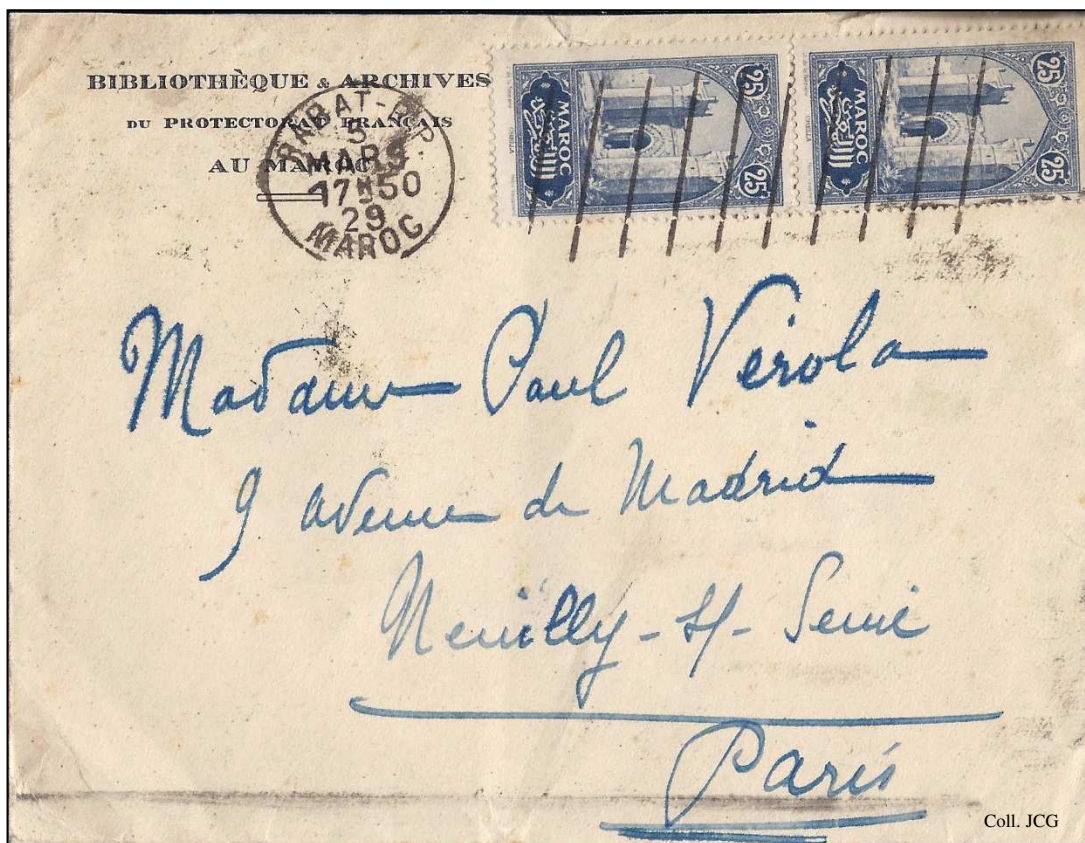 BIBLIOTHÈQUE & ARCHIVES
DU PROTECTORAT FRANÇAIS
AU MAROC
RABAT-R.P.
5
MARS
17H50
29
MAROC
25c MAROC 25c
25c MAROC 25c
Madame Paul Verola
9 avenue de Madrid
Neuilly-s/-Seine
Paris
Coll. JCG